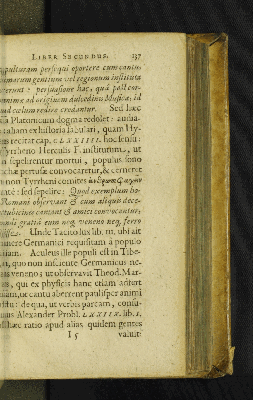 LIBER SECUNDUS. 137
pulturam persequi oportere cum cantu:
marum gentium vel regionum instituta
verunt: persuasione hac, quod post cor-
animæ ad originem dulcedinis Musicæ, id
ad cælum redire credantur. Sed hæc
Platonicum dogma redolet: audia-
tuham ex historia fabulari, quam Hy-
recitat cap. CLXXIIII. hoc sensu:
Tyrrheno Herculis F. institutum, ut
sepelirentur mortui, populus sono
buccinæ pertusæ convocaretur, & cerneret
non Tyrrheni comites
sed sepelire: Quod exemplum ho-
Romani observant & cum aliquis deces-
tubicines cantant & amici convocantur,
gratiâ eum neq; veneno neq; ferro
Unde Tacito lux lib. III. ubi ait
funere Germanici requisitam à populo
Aculeus ille populi est in Tibe-
quo non insciente Germanicus ne-
veneno: ut observavit Theod. Mar-
qui ex physicis hanc etiam adfert
ut cantu aberrent paulisper animi
de qua, ut verbis parcam, consu-
Alexander Probl. LXXIIX. lib. I.
hæc ratio apud alias quidem gentes
I 5 valuit: